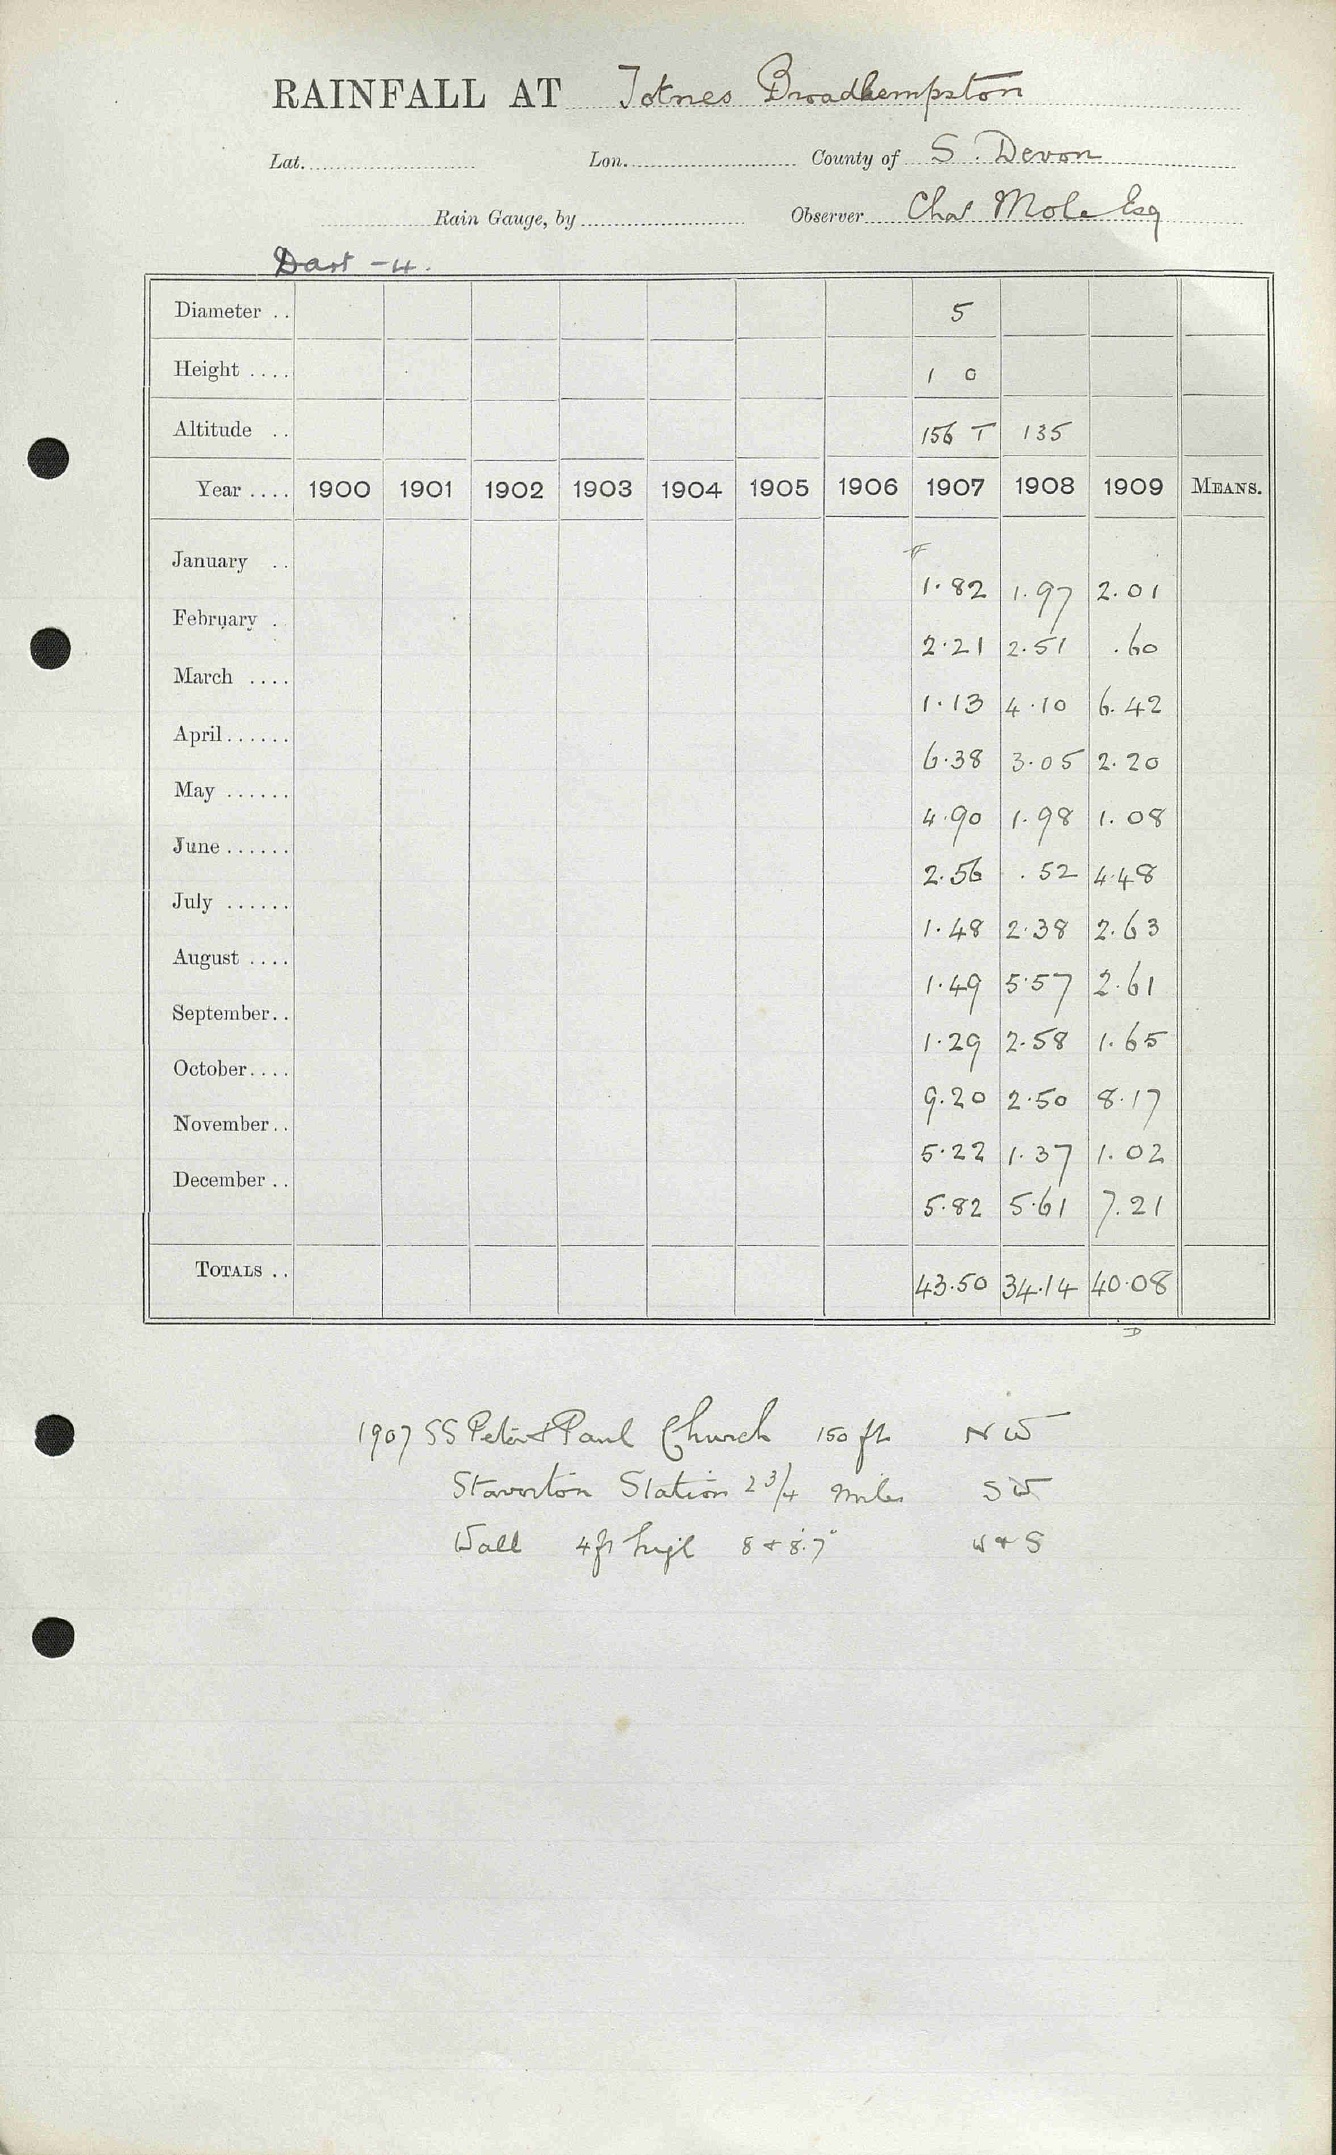 RAINFALL AT Totnes Broadhempston
Lat. Lon. County of S. Devon
Rain Gauge, by Observer Chas Mole Esq
Dart - 4.
Diameter .. 5
Height .... 1 0
Altitude .. 156 T 135
Year .... 1900 1901 1902 1903 1904 1905 1906 1907 1908 1909 MEANS.
January .. 1.82 1.97 2.01
February . 2.21 2.51 .60
March .... 1.13 4.10 6.42
April...... 6.38 3.05 2.20
May ...... 4.90 1.98 1.08
June ...... 2.56 .52 4.48
July ...... 1.48 2.38 2.63
August .... 1.49 5.57 2.61
September.. 1.29 2.58 1.65
October.... 9.20 2.50 8.17
November.. 5.22 1.37 1.02
December .. 5.82 5.61 7.21
TOTALS .. 43.50 34.14 40.08
D
1907 SS Peter & Paul Church 150 ft NW
Staverton Station 2 3/4 miles SW
Wall 4ft high 8 & 8.7" W & S